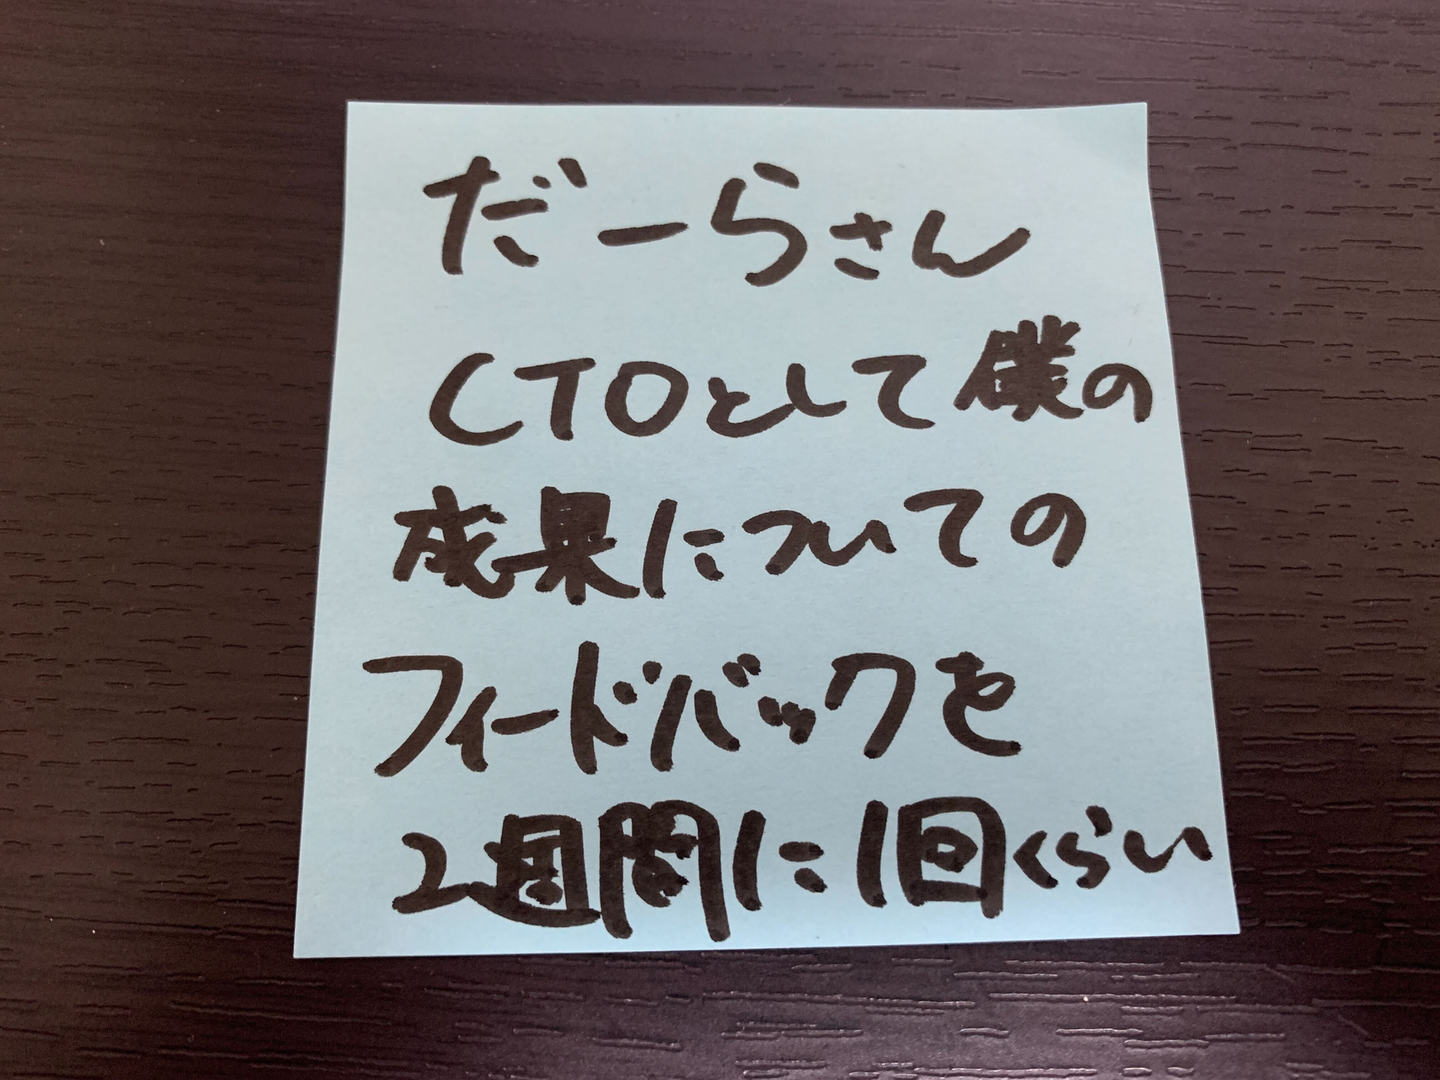 だーらさん
CTOとして僕の
成果についての
フィードバックを
2週間に1回くらい